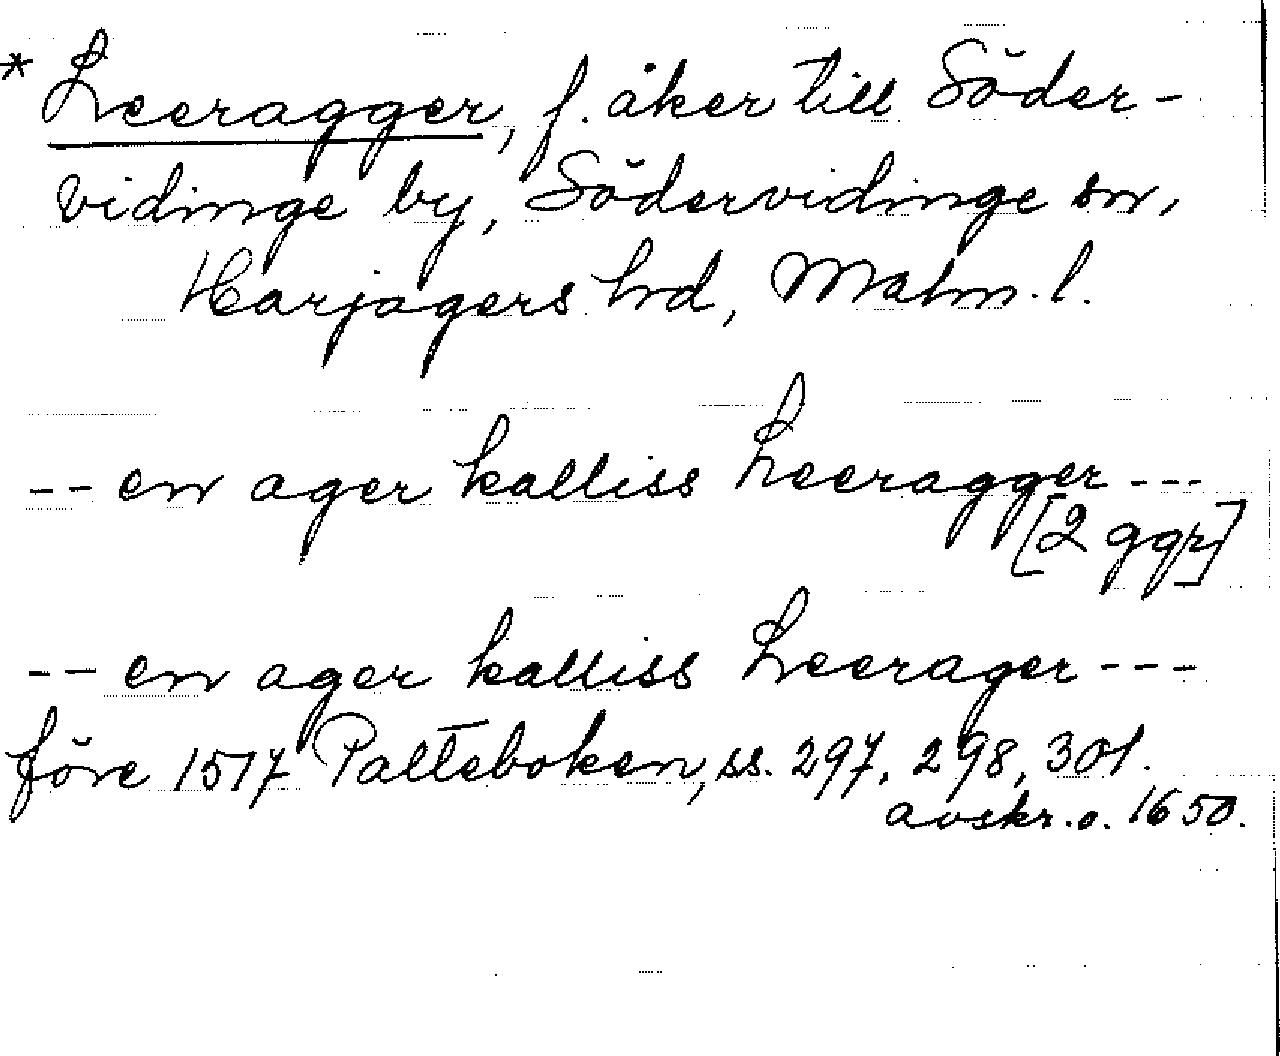 * Leeragger, f. åker till Söder-
vidinge by, Södervidinge sn,
Harjagers hd, Malm. l.
-- en ager kalliss Leeragger ---
[2 ggr]
-- en ager kalliss Leerager ---
före 1517 Palteboken, ss. 297, 298, 301.
avskr. o. 1650.